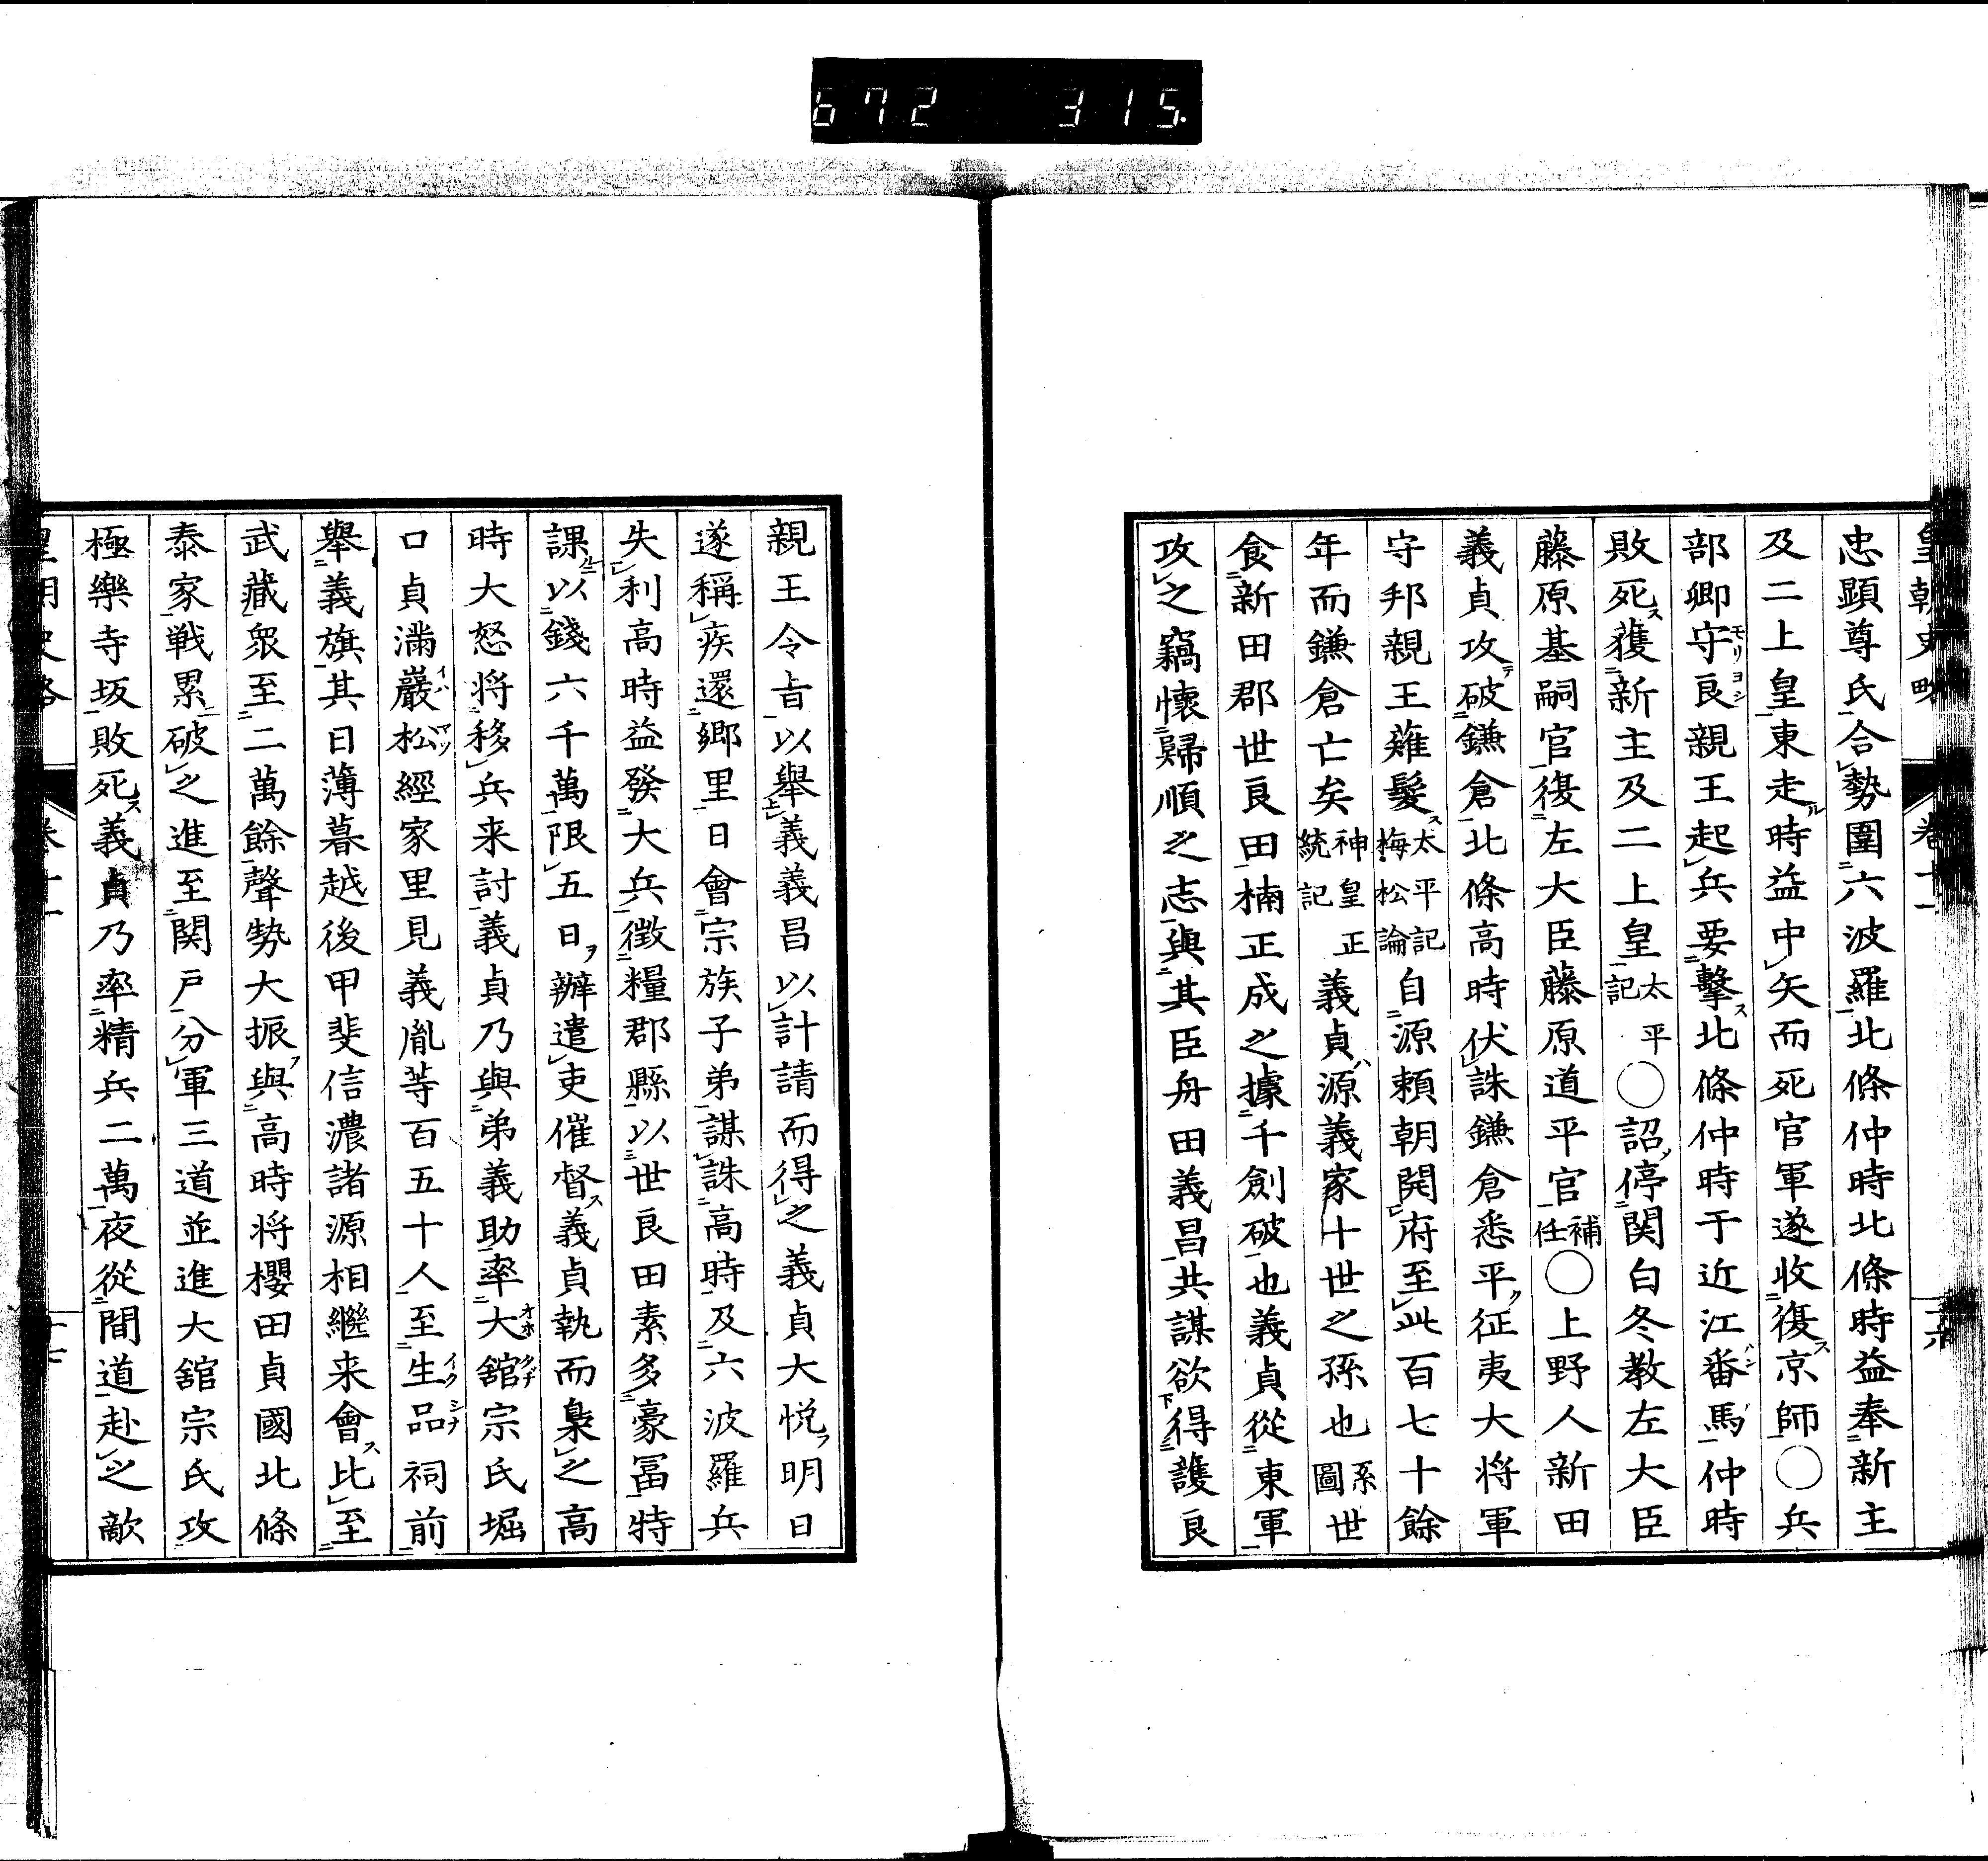 672 315.
皇朝史略 卷十一 十六
忠顯尊氏合勢圍六波羅北條仲時北條時益奉新主
及二上皇東走時益中矢而死官軍遂收復京師○兵
部卿守良親王起兵要擊北條仲時于近江番馬仲時
敗死獲新主及二上皇太平記○詔停関白冬教左大臣
藤原基嗣官復左大臣藤原道平官補任○上野人新田
義貞攻破鎌倉北條高時伏誅鎌倉悉平征夷大将軍
守邦親王薙髮太平記梅松論自源頼朝開府至此百七十餘
年而鎌倉亡矣神皇正統記義貞源義家十世之孫也系圖世
食新田郡世良田楠正成之據千劍破也義貞從東軍
攻之竊懷歸順之志與其臣舟田義昌共謀欲得護良
親王令旨以舉義義昌以計請而得之義貞大悦明日
遂稱疾還鄉里日會宗族子弟謀誅高時及六波羅兵
失利高時益發大兵徴糧郡縣以世良田素多豪冨特
課以錢六千萬限五日辦遣吏催督義貞執而梟之高
時大怒将移兵来討義貞乃與弟義助率大舘宗氏堀
口貞滿巖松經家里見義胤等百五十人至生品祠前
舉義旗其日薄暮越後甲斐信濃諸源相繼来會比至
武藏衆至二萬餘聲勢大振與高時将櫻田貞國北條
泰家戦累破之進至関戸分軍三道並進大舘宗氏攻
極樂寺坂敗死義貞乃率精兵二萬夜從間道赴之敵